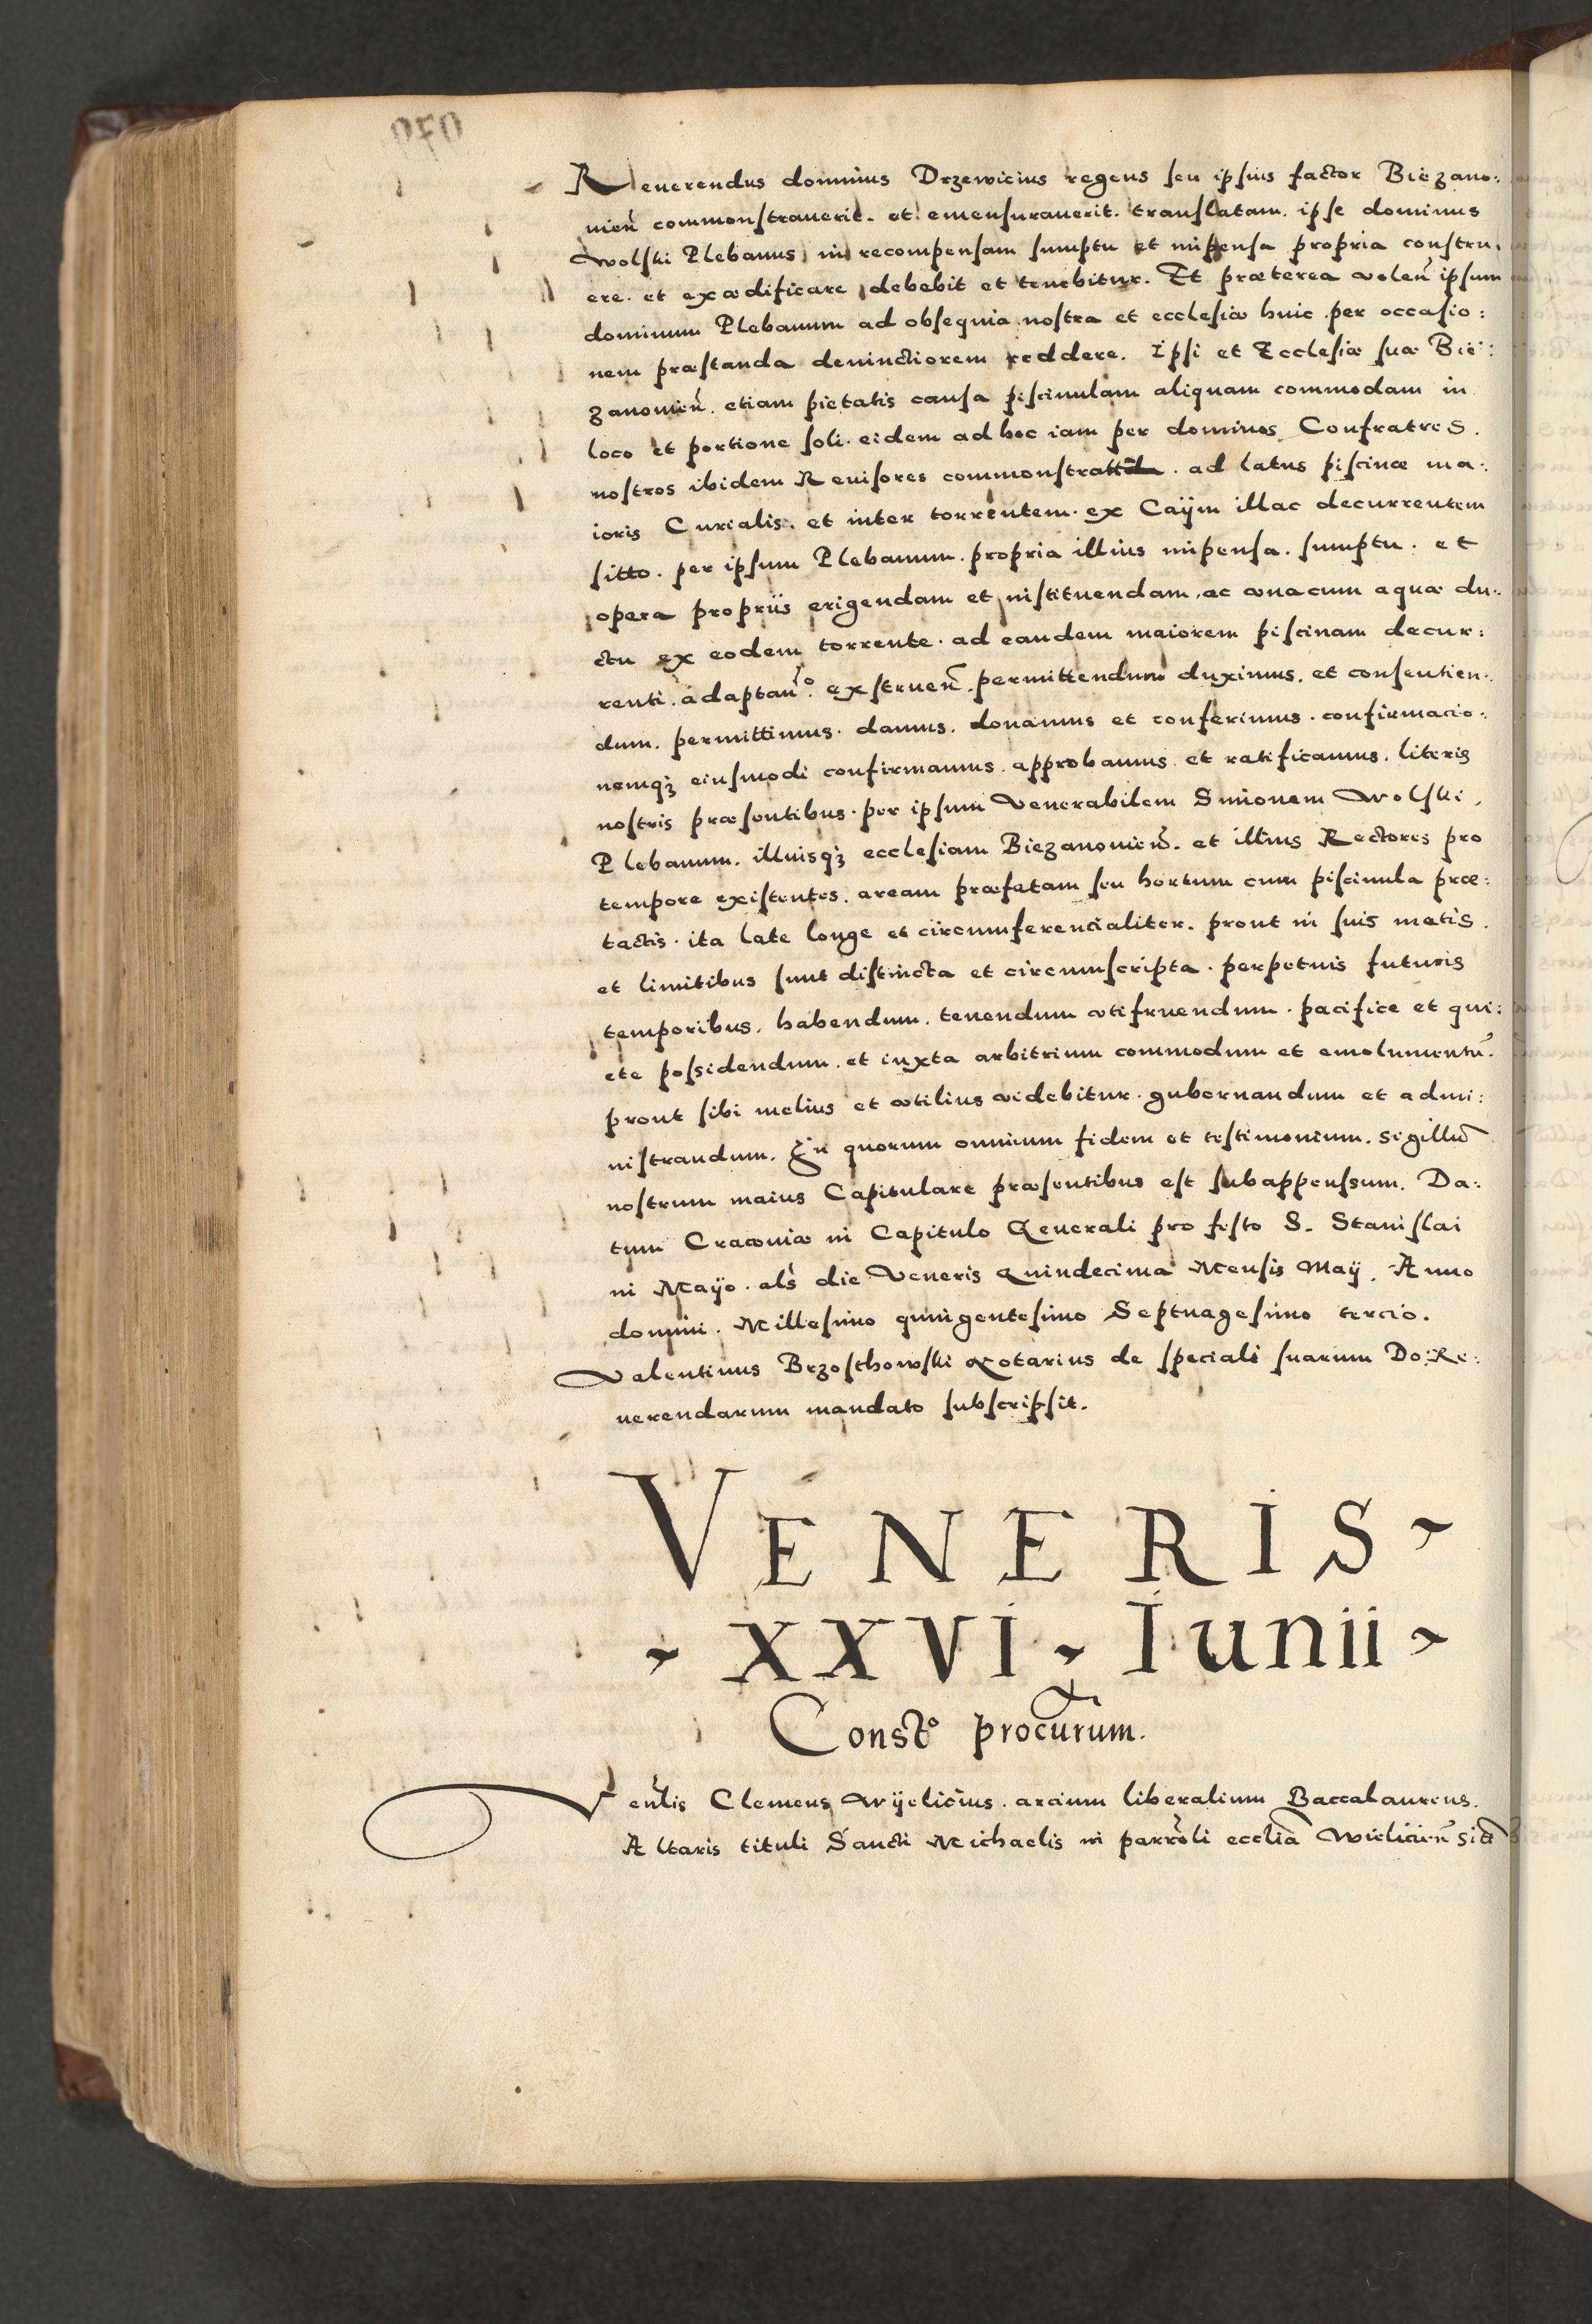 Reuerendus dominus Drzewicius regens seu ipsius factor Biezano:
nieñ commonstrauerit. et emensurauerit. translatam. ipse dominus
Wolski Plebanus in recompensam sumptu et impensa propria constru,
ere. et exædificare debebit et tenebitur. Et præterea voleñ ipsum
dominum Plebanum ad obsequia nostra et ecclesiæ huic per occasio:
nem præstanda deuinctiorem reddere. Ipsi et Ecclesiæ suæ Bie:
zanouieñ. etiam pietatis causa piscinulam aliquam commodam in
loco et portione soli. eidem ad hoc iam per dominos Confratres.
nostros ibidem Reuisores commonstrat . ad latus piscinæ ma:
ioris Curialis. et inter torrentem. ex Caÿm illac decurrentem
sitto. per ipsum Plebanum. propria illius impensa. sumptu. et
opera propriis erigendam et instituendam. ac vnacum aquæ du:
ctu ex eodem torrente. ad eandem maiorem piscinam decur:
renti. adaptañº. exstrueñ. permittendum duximus. et consentien:
dum. permittimus. damus. donamus et conferimus. confirmacio:
nemqꝫ eiusmodi confirmamus. approbamus. et ratificamus. literis
nostris præsentibus. per ipsum Venerabilem Simonem Wolski,
Plebanum. illuisqꝫ ecclesiam Biezanouieñ. et illius Rectores pro
tempore existentes. aream præfatam seu hortum cum piscinula præ:
tactis. ita late longe et circumferencialiter. prout in suis metis.
et limitibus sunt distincta et circumscripta. perpetuis futuris
temporibus. habendum. tenendum vtifruendum. pacifice et qui:
ete possidendum. et iuxta arbitrium commodum et emolumentũ.
prout sibi melius et vtilius videbitur. gubernandum et admi:
nistrandum. In quorum omnium fidem et testimonium. sigillũ
nostrum maius Capitulare præsentibus est subappenssum. Da:
tum Cracouiæ in Capitulo Generali pro festo S. Stanislai
in Mayo. als̃ die Veneris Quindecima Mensis Maÿ. Anno
domini. Millesimo quingentesimo Septuagesimo tercio.
Valentinus Brzosthowski Notarius de speciali suarum Do: Re:
uerendarum mandato subscripsit.
VENERIS ~
~ XXVI ~ Iunii ~
Constº procurum.
Venłis Clemens Wÿelicius. arcium liberalium Baccalaureus.
Altaris tituli Sancti Michaelis in parroli ecclia Wielicieñ